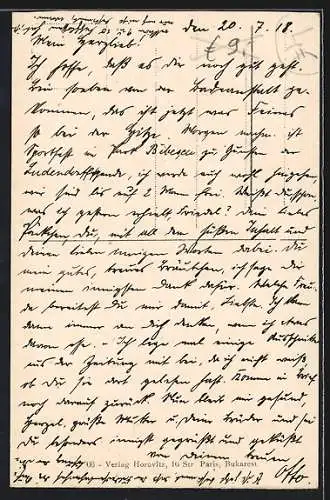 den 20. 7. 18.
Mein Herzlieb!
Ich hoffe, daß es dir noch gut geht.
Bin soeben von der Badeanstalt ge-
kommen, das ist jetzt was Feines
so bei der Hitze. Morgen nachm. ist
Sportfest im Park Bibescu zu Gunsten der
Ludendorffspende, ich werde auch wohl hingehen,
wir sind bis auf 2 Mann frei. Weißt du schon,
was ich gestern erhielt Friedel? Dein liebes
Päckchen, du, mit all dem süßen Inhalt und
deinen lieben innigen Worten dabei. Du
mein gutes, treues Bräutchen, ich sage dir
meinen innigsten Dank dafür. Welche Freu-
de bereitest du mir damit, Liebste. Ich kann
dann immer an dich denken, wenn ich etwas
davon esse. - Ich lege mal einige Ausschnitte
aus der Zeitung mit bei, da ich nicht weiß,
ob du sie dort gelesen hast. Komme im Brief
noch darauf zurück. Nun bleib mir gesund,
Herzel, grüße Mutter u. dein Brüder und sei
du besonders innigst gegrüßt und geküßt
von deinem treuen
Otto
Verlag Horovitz, 16 Str. Paris, Bukarest.